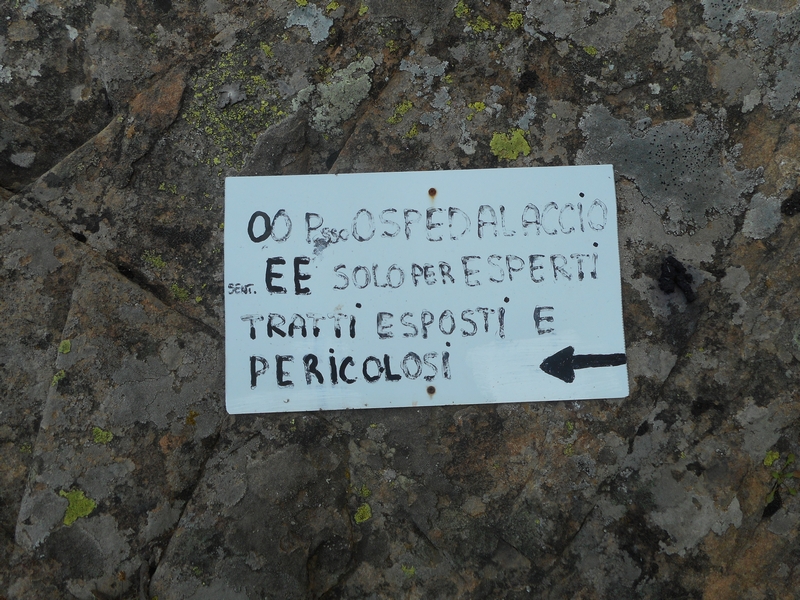 00 Psso OSPEDALACCIO
SENT. EE SOLO PER ESPERTI
TRATTI ESPOSTI E
PERICOLOSI